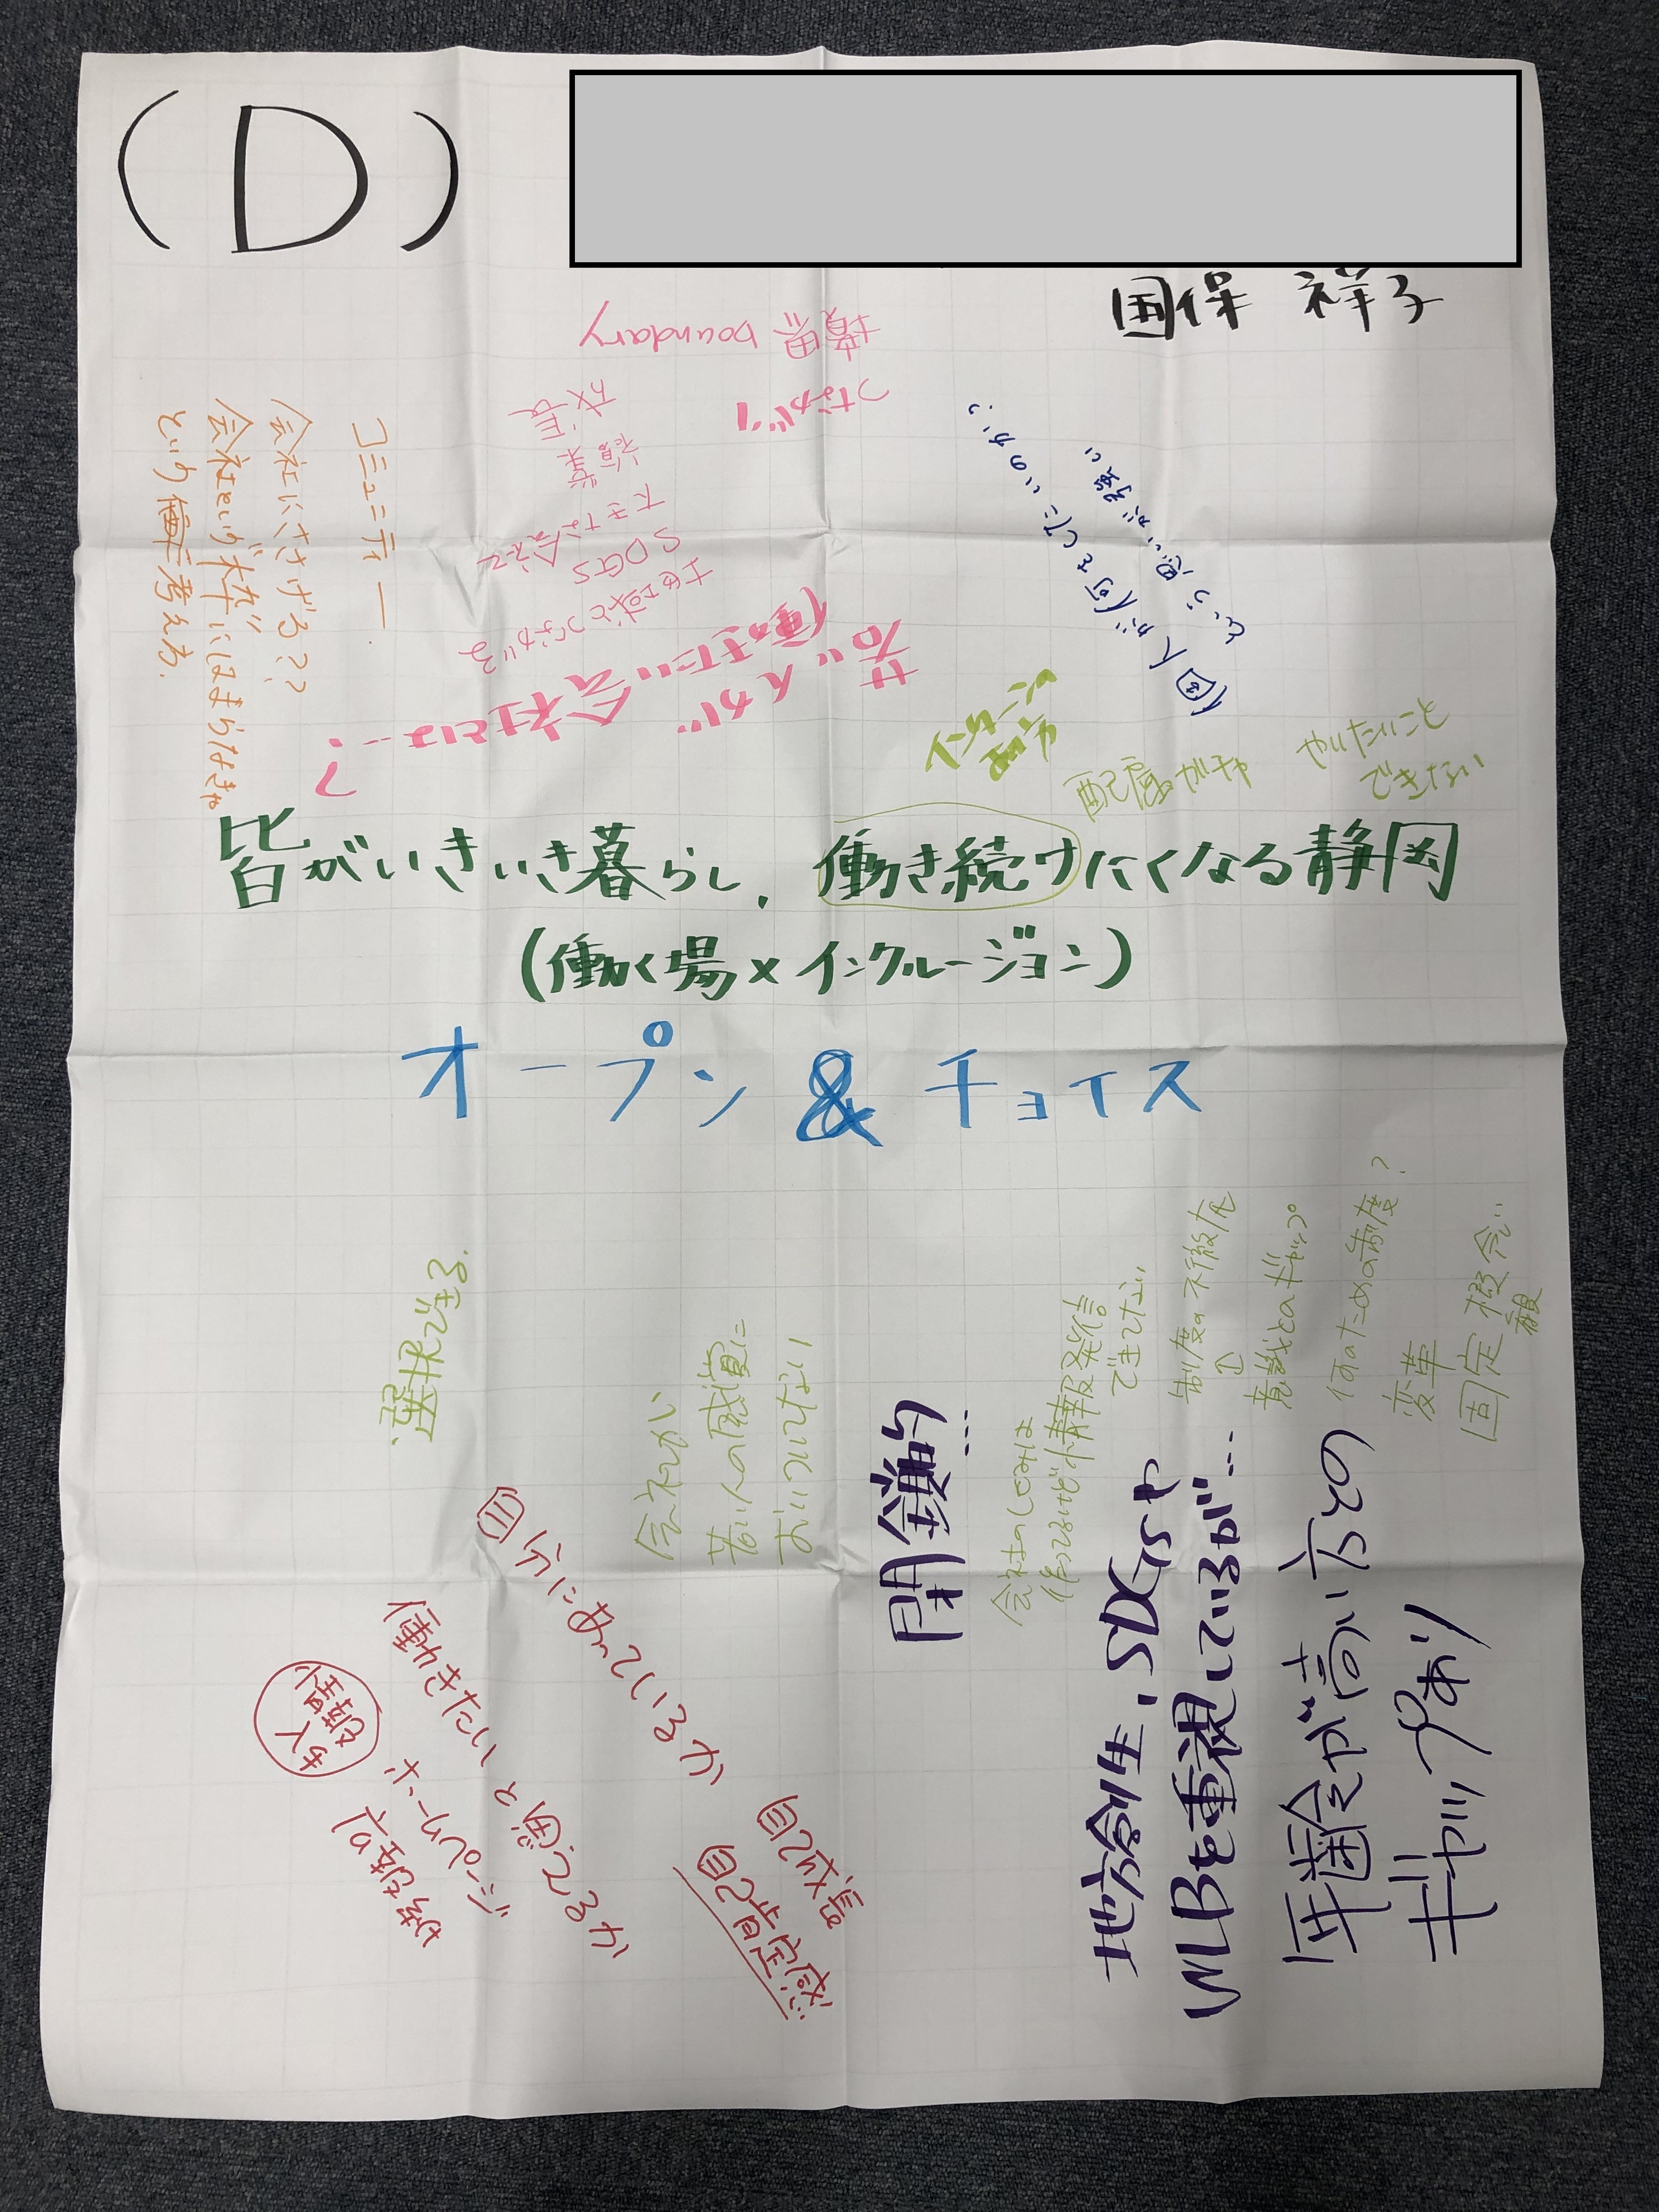 (D)
国保 祥子
境界 boundary
つながり
成長
副業
大きな会社
SDGs
地域とつながる
若い人が
働きたい会社とは…?
コミュニティー
会社にささげる??
会社という枠にはまらなきゃ
という働き考え方
個人が何をしたいのか、
という思いが強い
インターンの
あり方
配慮がホ
やりたいこと
できない
皆がいきいき暮らし、働き続けたくなる静岡
(働く場×インクルージョン)
オープン&チョイス
選択できる
会社が
若い人の感覚に
おいついてない
閉鎖的…
会社のしくみは
情報発信
できてない
制度の不徹底
↑
意識とのギャップ
何のための制度?
変革
固定概念
親
地方創生、SDGsや
WLBを重視しているが…
年齢が高い方との
ギャップあり
自分にあっているか
働きたいと思えるか
ホームページ
自己成長
自己肯定感